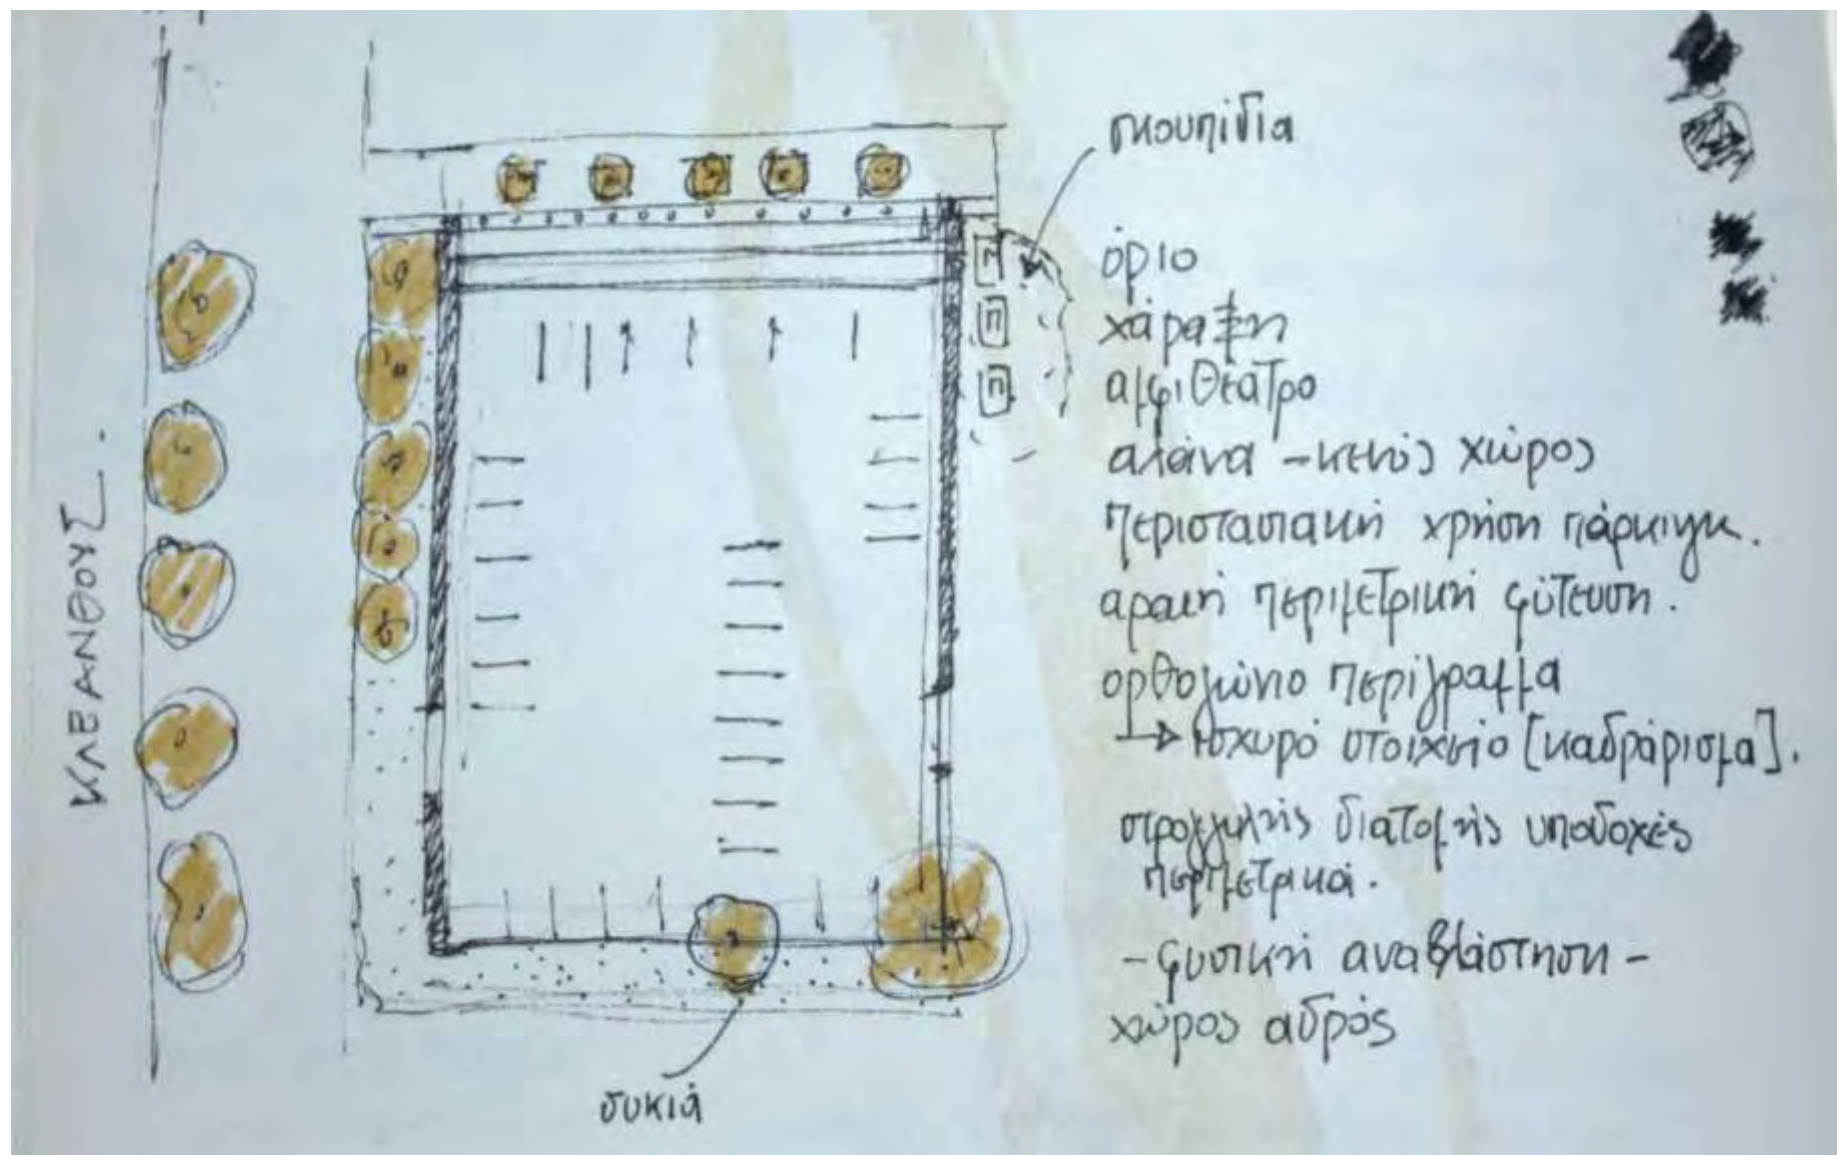 σκουπίδια
όριο
χάραξη
αμφιθέατρο
αλάνα - κενός χώρος
περιστασιακή χρήση πάρκινγκ.
αραιή περιμετρική φύτευση.
ορθογώνιο περίγραμμα
→ ισχυρό στοιχείο [καδράρισμα].
στρογγυλής διατομής υποδοχές
περιμετρικά.
- φυσική αναβλάστηση -
χώρος αδρός
ΚΛΕΑΝΘΟΥΣ.
συκιά
Π
Π
Π